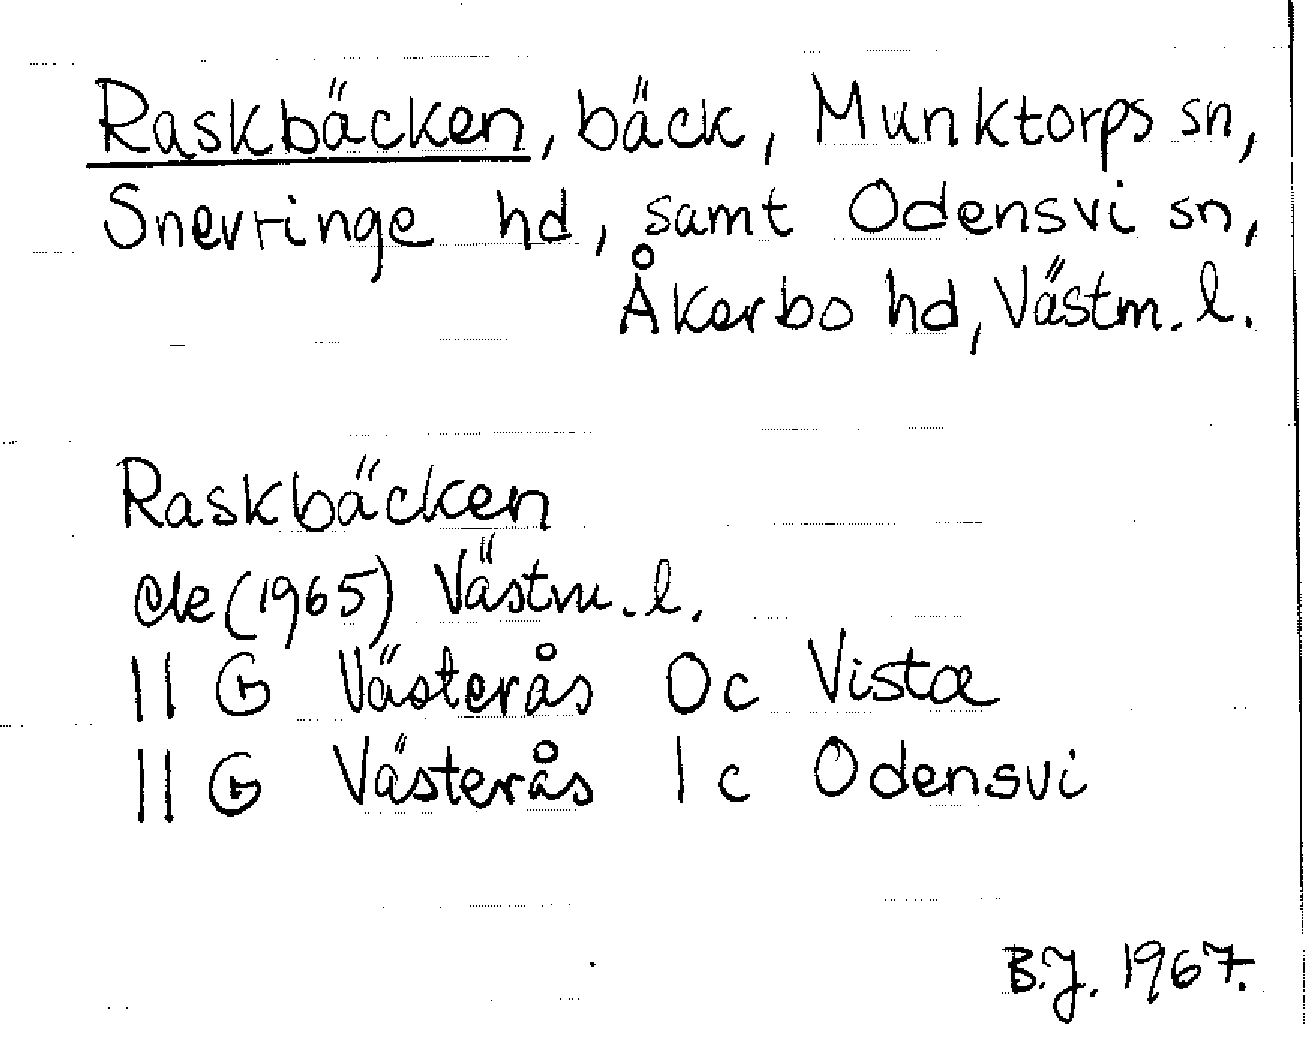 Raskbäcken, bäck, Munktorps sn,
Snevringe hd, samt Odensvi sn,
Åkerbo hd, Västm. l.
Raskbäcken
ek (1965) Västm. l.
11 G Västerås 0c Vista
11 G Västerås 1c Odensvi
B.J. 1967.